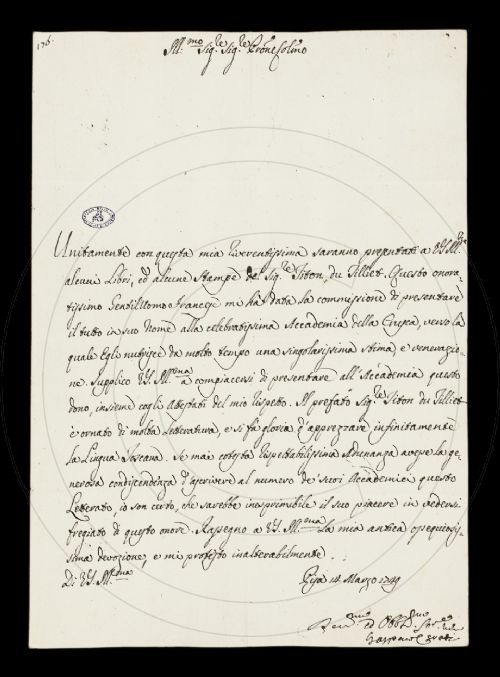 176.
Ill.mo Sig.re Sig.re Prōne Colmo
Unitamente con questa mia riverentissima saranno presentati a VS. Ill.ma
alcuni Libri, ed alcune Stampe del Sig.re Titon du Tilliet. Questo onora-
tissimo Gentilomo Francese mi hà data la commissione di presentare
il tutto in suo Nome alla celebratissima Accademia della Crusca, verso la
quale Egli nutrisce da molto tempo una singolarissima stima, e venerazio-
ne. Supplico VS. Ill.ma a compiacersi di presentare all'Accademia questo
dono, insieme cogli Attestati del mio rispetto. Il prefato Sig.re Titon du Tilliet
è ornato di molta Letteratura, e si fà gloria d'apprezzare infinitamente
la Lingua Toscana. Se mai cotesta rispettabilissima Adunanza avesse la ge-
nerosa condiscendenza d'ascrivere al numero de' suoi Accademici questo
Letterato, io son certo, che sarebbe inesprimibile il suo piacere in vedersi
fregiato di questo onore. Rassegno a VS. Ill.ma la mia antica ossequiosis-
sima devozione, e mi protesto inalterabilmente . .
Di VS. Ill.ma
Pisa 18 Marzo 1749
Dev.mo ed Obb.mo Ser.e
Gasparo Cerati